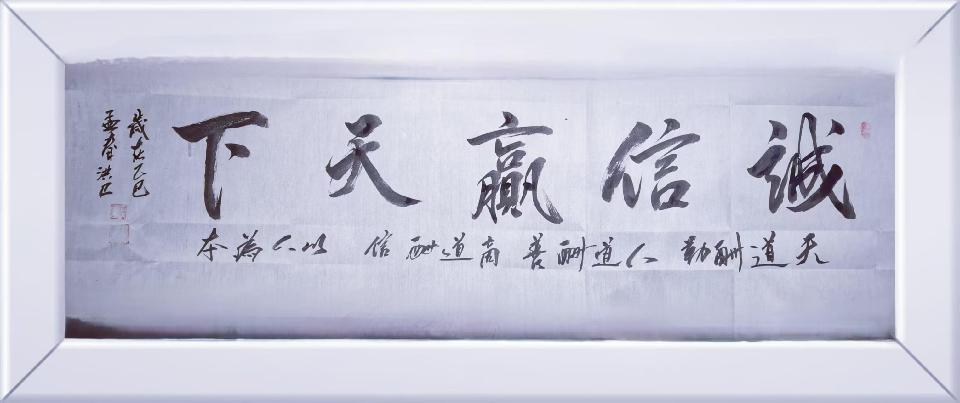 誠信贏天下
天道酬勤 人道酬善 商道酬信 以人為本
歲在乙巳
孟春洪